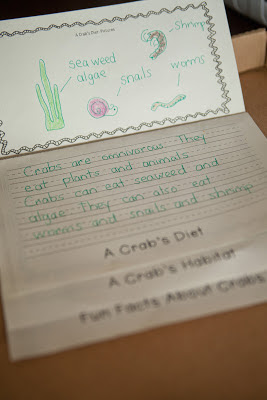 A Crab's Diet Pictures
shrimp
seaweed
algae
snails
worms
Crabs are omnivorous. They
eat plants and animals.
Crabs can eat seaweed and
algae. They can also eat
worms and snails and shrimp.
A Crab's Diet
A Crab's Habitat
Fun Facts About Crabs